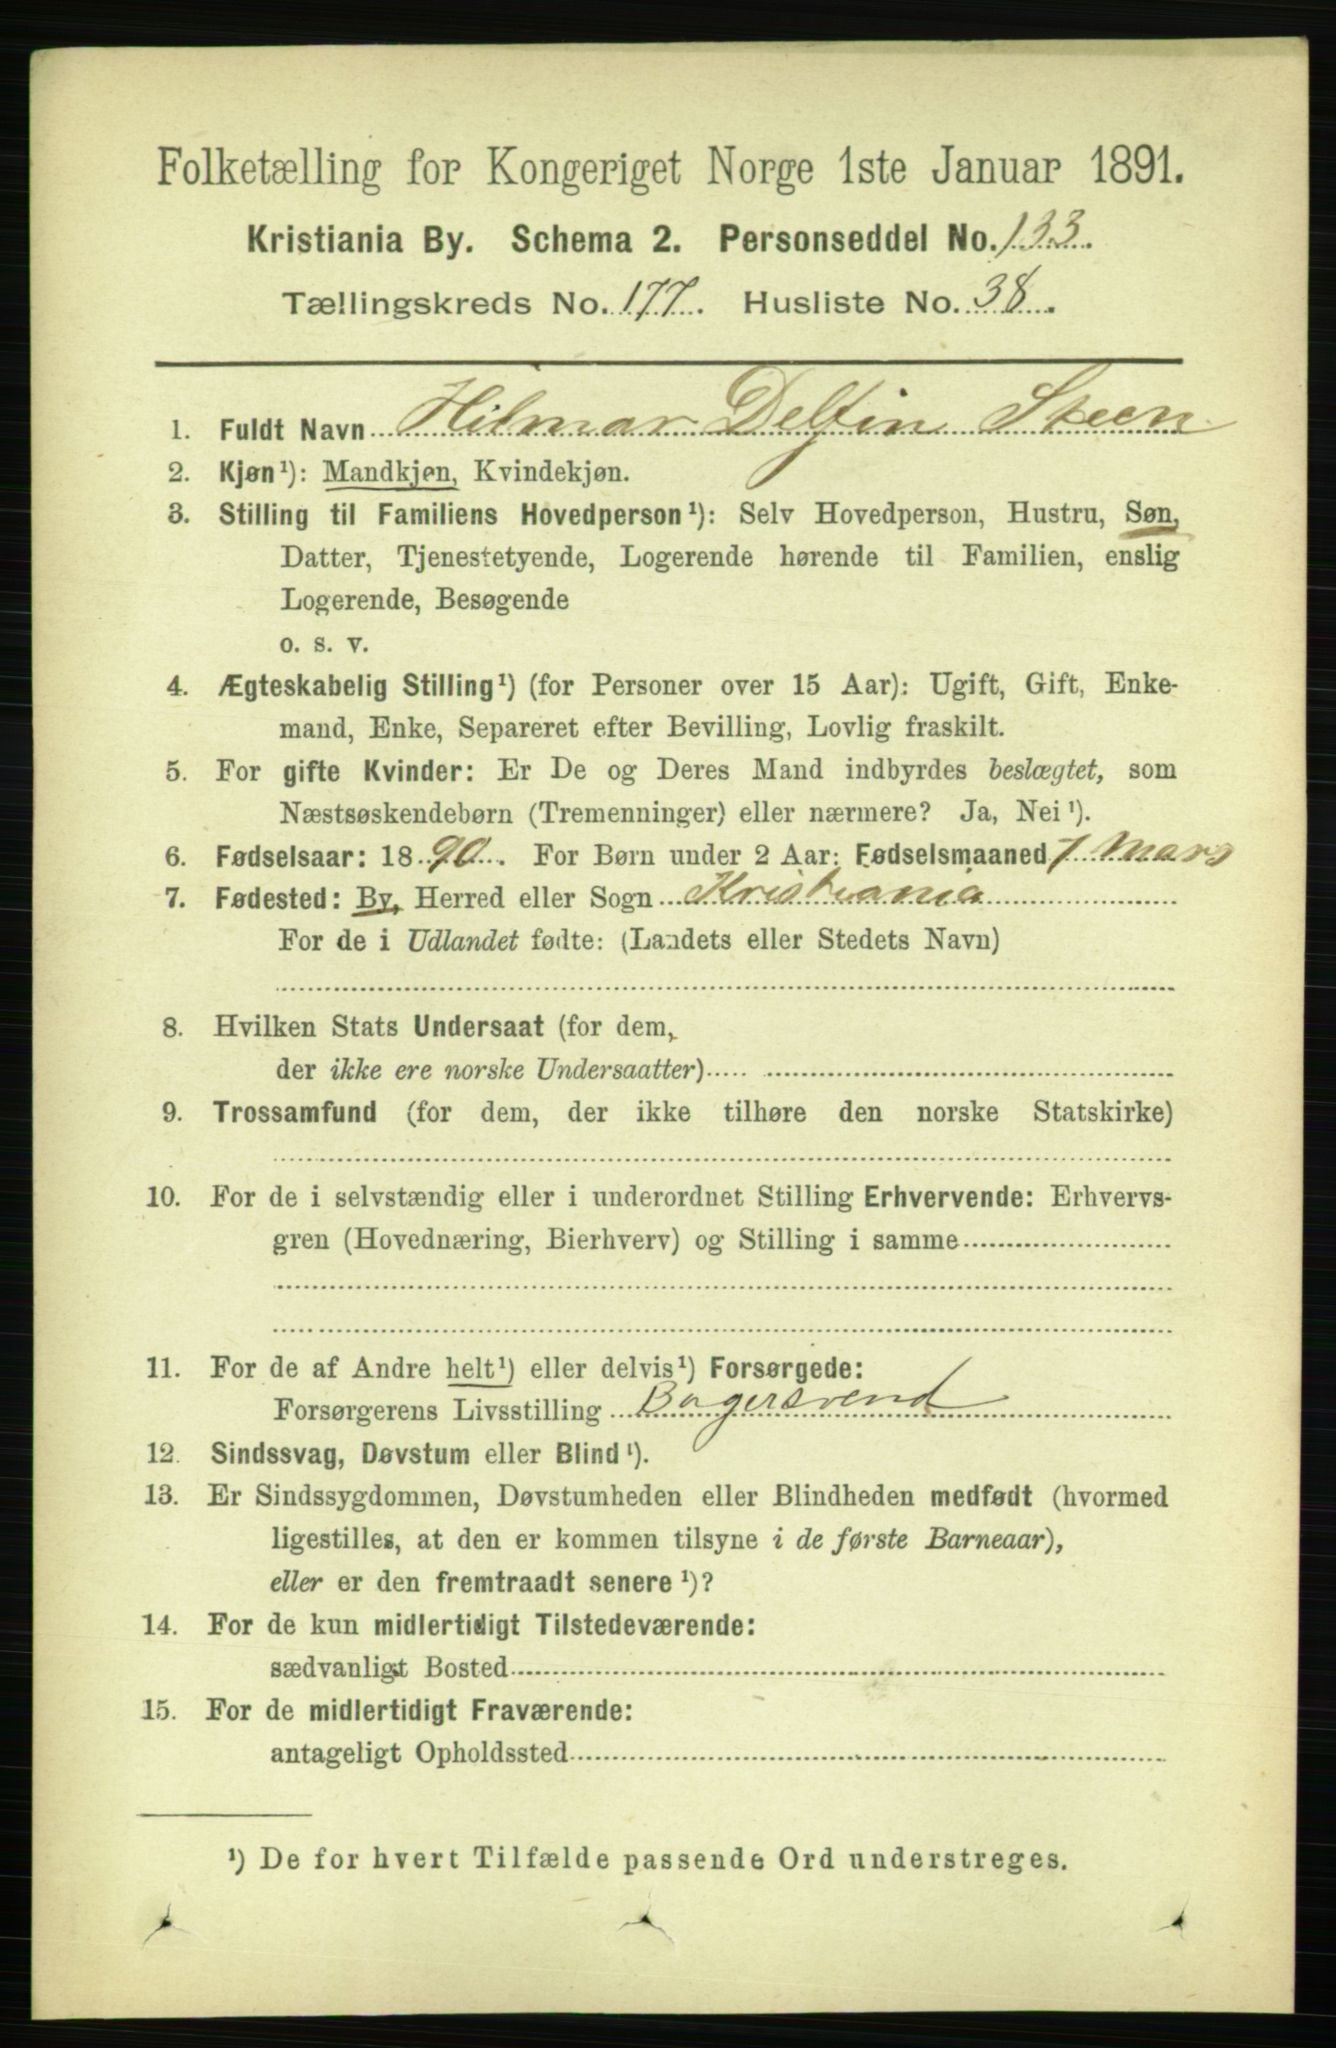 Folketælling for Kongeriget Norge 1ste Januar 1891.
Kristiania By. Schema 2. Personseddel No. 133.
Tællingskreds No. 177. Husliste No. 38.
1. Fuldt Navn Hilmar Delfin Steen
2. Kjøn¹): Mandkjøn, Kvindekjøn.
3. Stilling til Familiens Hovedperson¹): Selv Hovedperson, Hustru, Søn,
Datter, Tjenestetyende, Logerende hørende til Familien, enslig
Logerende, Besøgende
o. s. v.
4. Ægteskabelig Stilling¹) (for Personer over 15 Aar): Ugift, Gift, Enke-
mand, Enke, Separeret efter Bevilling, Lovlig fraskilt.
5. For gifte Kvinder: Er De og Deres Mand indbyrdes beslægtet, som
Næstsøskendebørn (Tremenninger) eller nærmere? Ja, Nei¹).
6. Fødselsaar: 1890. For Børn under 2 Aar: Fødselsmaaned 7 Mars
7. Fødested: By, Herred eller Sogn Kristiania
For de i Udlandet fødte: (Landets eller Stedets Navn)
8. Hvilken Stats Undersaat (for dem,
der ikke ere norske Undersaatter)
9. Trossamfund (for dem, der ikke tilhøre den norske Statskirke)
10. For de i selvstændig eller i underordnet Stilling Erhvervende: Erhvervs-
gren (Hovednæring, Bierhverv) og Stilling i samme
11. For de af Andre helt¹) eller delvis¹) Forsørgede:
Forsørgerens Livsstilling Bagersvend
12. Sindssvag, Døvstum eller Blind¹).
13. Er Sindssygdommen, Døvstumheden eller Blindheden medfødt (hvormed
ligestilles, at den er kommen tilsyne i de første Barneaar),
eller er den fremtraadt senere¹)?
14. For de kun midlertidigt Tilstedeværende:
sædvanligt Bosted
15. For de midlertidigt Fraværende:
antageligt Opholdssted
¹) De for hvert Tilfælde passende Ord understreges.